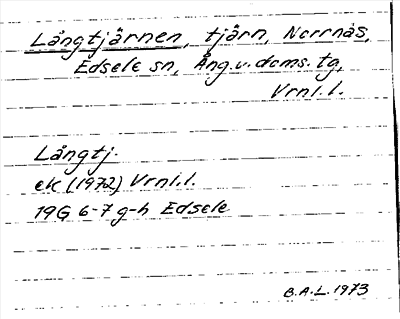 Långtjärnen, tjärn, Norrnäs,
Edsele sn, Ång.v.doms.tg,
Vrnl.l.
Långtj.
ek (1972) Vrnl.l.
19G 6-7 g-h Edsele
B.A.L. 1973